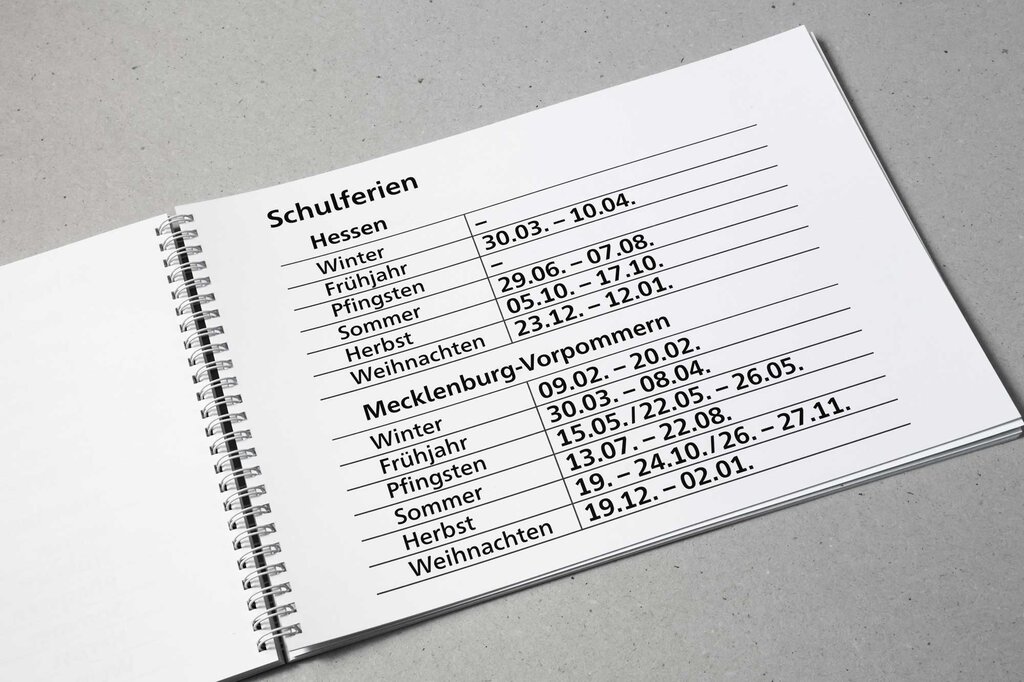 Schulferien
Hessen
Winter –
Frühjahr 30.03. – 10.04.
Pfingsten –
Sommer 29.06. – 07.08.
Herbst 05.10. – 17.10.
Weihnachten 23.12. – 12.01.
Mecklenburg-Vorpommern
Winter 09.02. – 20.02.
Frühjahr 30.03. – 08.04.
Pfingsten 15.05. / 22.05. – 26.05.
Sommer 13.07. – 22.08.
Herbst 19. – 24.10. / 26. – 27.11.
Weihnachten 19.12. – 02.01.